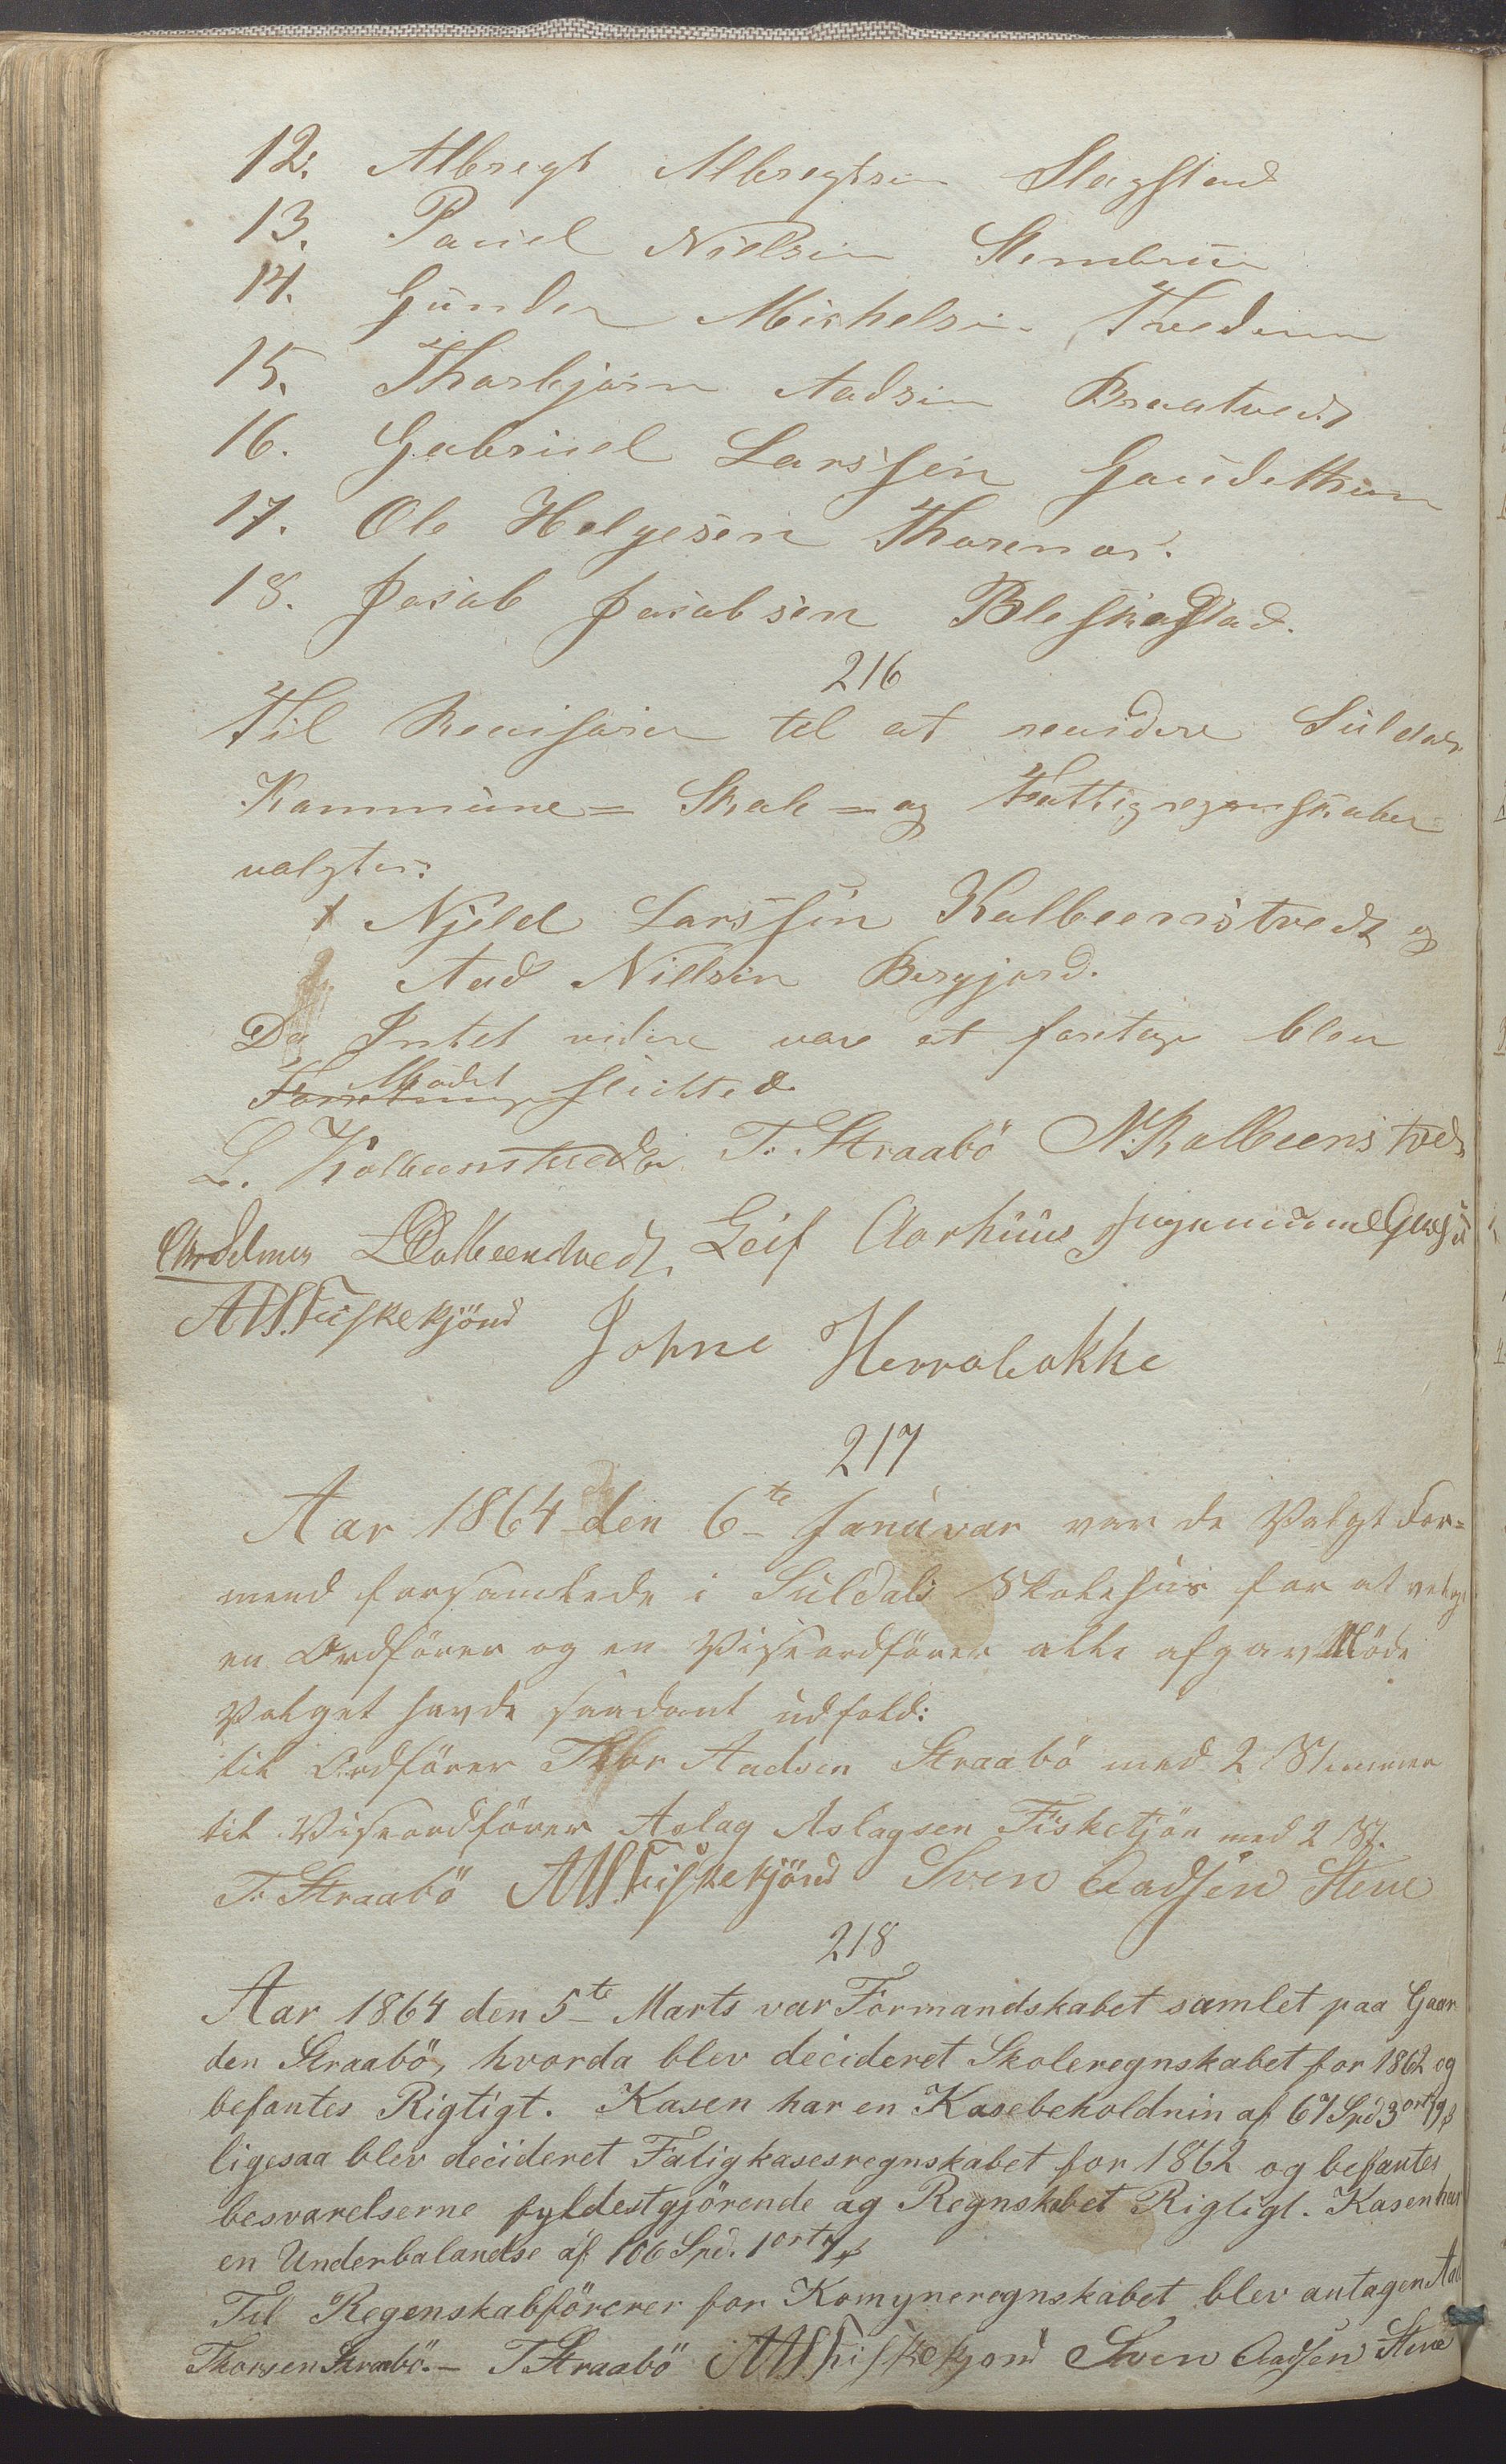 12. Albregt Albregtsen Slagstad
13. Poul Nielsen Stembru
14. Gunder Michelsen Tvedum
15. Thorbjørn Aadsen Braatvedt
16. Gabriel Larssen
17. Ole Helgesen Thorenas.
18. Jacob Jacobsen Bleskestad.
216
Til Revisorer til at revidere Suldals
Kommune- Skole- og Fattigregnskaber
valgtes:
1 Njeld Larssen Kolbeenstvedt og
2 Aad Nielsen Bergjord.
Da Intet videre var at foretage blev
Forretning Mødet sluttet.
L. Kolbeenstvedt. T. Straabö N. Kolbeenstvedt
L Kolbeenstvedt. Leif Aarhuus
AAs. Fiskekjönd Johne Herrabakke
217
Aar 1864 den 6te Januvar var de Valgt For=
mend forsamlede i Suldals Skolehus for at velge
en Ordförer og en Viseordförer alle afgav Möde
Valget havde saadant udfald:
til Ordförer Thor Aadsen Straabö med 2 Stemmer
til Viseordförer Aslag Aslagsen Fisketjön med 2 St.
T. Straabö AAs. Fiskekjönd Sven Aadsen Stene
218
Aar 1864 den 5te Marts var Formandskabet samlet paa Gaar
den Straabö, hvorda blev decideret Skoleregnskabet for 1862 og
befantes Rigtigt. Kasen har en Kasebeholdnin af 67 Spd 3 ort 19 ß
ligesaa blev decideret Fatigkasesregnskabet for 1862 og befantes
besvarelserne fyldestgjörende og Regnskabet Rigtigt. Kasen har
en Underbalandse af 106 Spd. 1 ort 7 ß
Til Regenskabförerer for Komyneregnskabet blev antagen Aad
Thorsen Straabö.- T Straabö AAs Fiskekjönd Sven Aadsen Stene